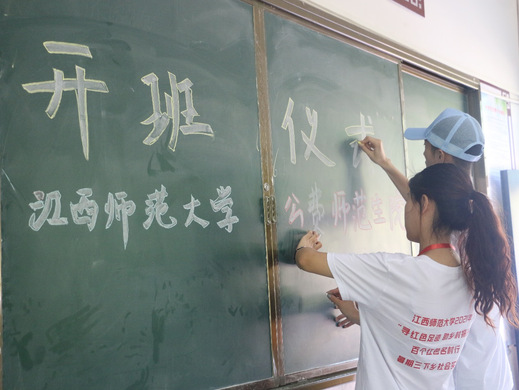 开班仪式
江西师范大学 公费师范生
江西师范大学202
"寻红色足迹 助乡
百个红色名村行
暑期三下乡社会实